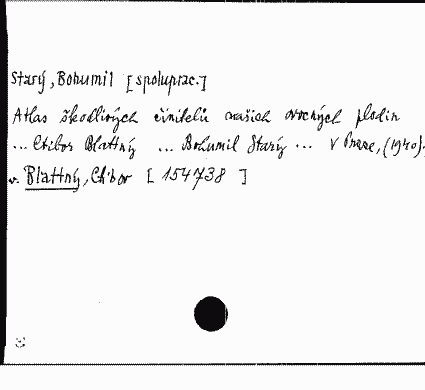 Starý, Bohumil [spoluprac.]
Atlas škodlivých činitelů našich ovocných plodin
... Ctibor Blattný ... Bohumil Starý ... V Praze, (1940).
v. Blattný, Ctibor [ 154738 ]